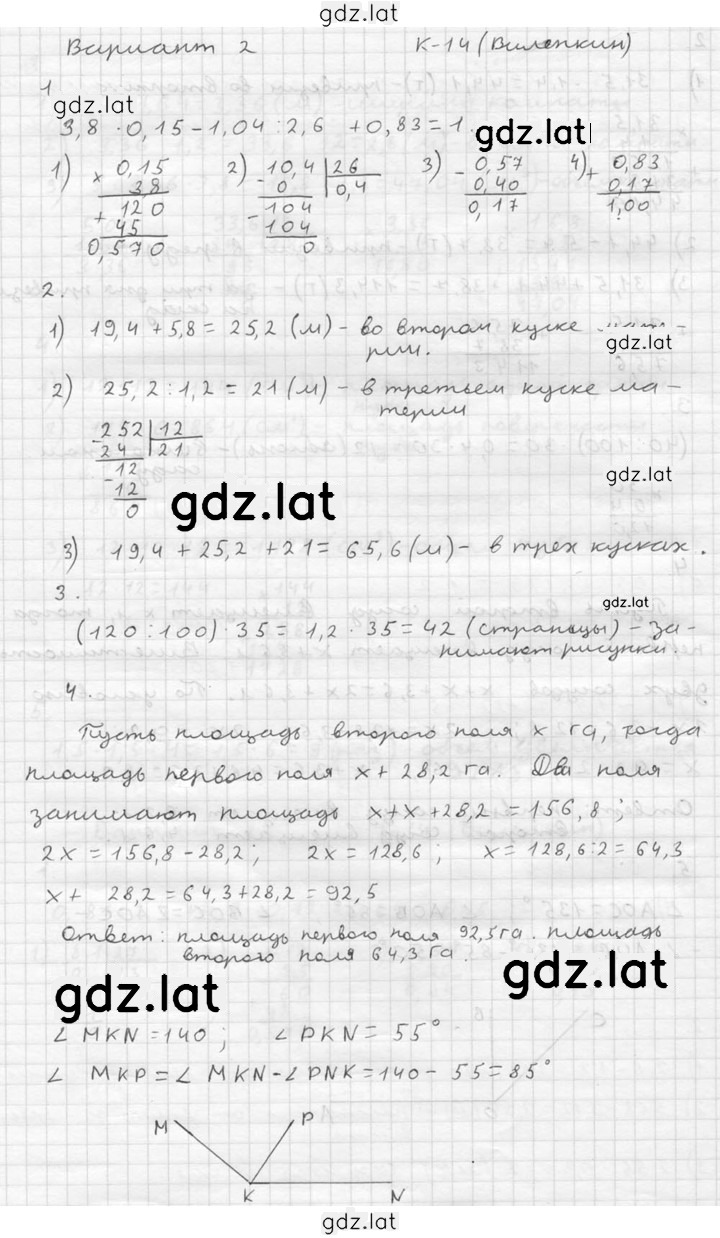 gdz.lat
Вариант 2 К-14 (Виленкин)
1
gdz.lat
3,8 · 0,15 – 1,04 : 2,6 + 0,83 = 1.
gdz.lat
1) × 0,15 2) - 10,4 | 26 3) - 0,57 4) + 0,83
3,8 0 0,4 0,40 0,17
+ 120 - 104 0,17 1,00
45 104
0,570 0
2.
1) 19,4 + 5,8 = 25,2 (м) – во втором куске
рии.
gdz.lat
2) 25,2 : 1,2 = 21 (м) – в третьем куске ма-
терии
- 252 | 12
24 21
- 12
12
0
gdz.lat
gdz.lat
3) 19,4 + 25,2 + 21 = 65,6 (м) – в трех кусках.
3.
gdz.lat
(120 : 100) · 35 = 1,2 · 35 = 42 (страницы) – за-
нимают рисунки.
4.
Пусть площадь второго поля x га, тогда
площадь первого поля x + 28,2 га. Два поля
занимают площадь x + x + 28,2 = 156,8;
2x = 156,8 – 28,2; 2x = 128,6; x = 128,6 : 2 = 64,3
x + 28,2 = 64,3 + 28,2 = 92,5
Ответ: площадь первого поля 92,5 га. площадь
второго поля 64,3 га.
gdz.lat
gdz.lat
∠ MKN = 140; ∠ PKN = 55°
∠ MKP = ∠ MKN - ∠ PNK = 140 – 55 = 85°
M P
K N
gdz.lat